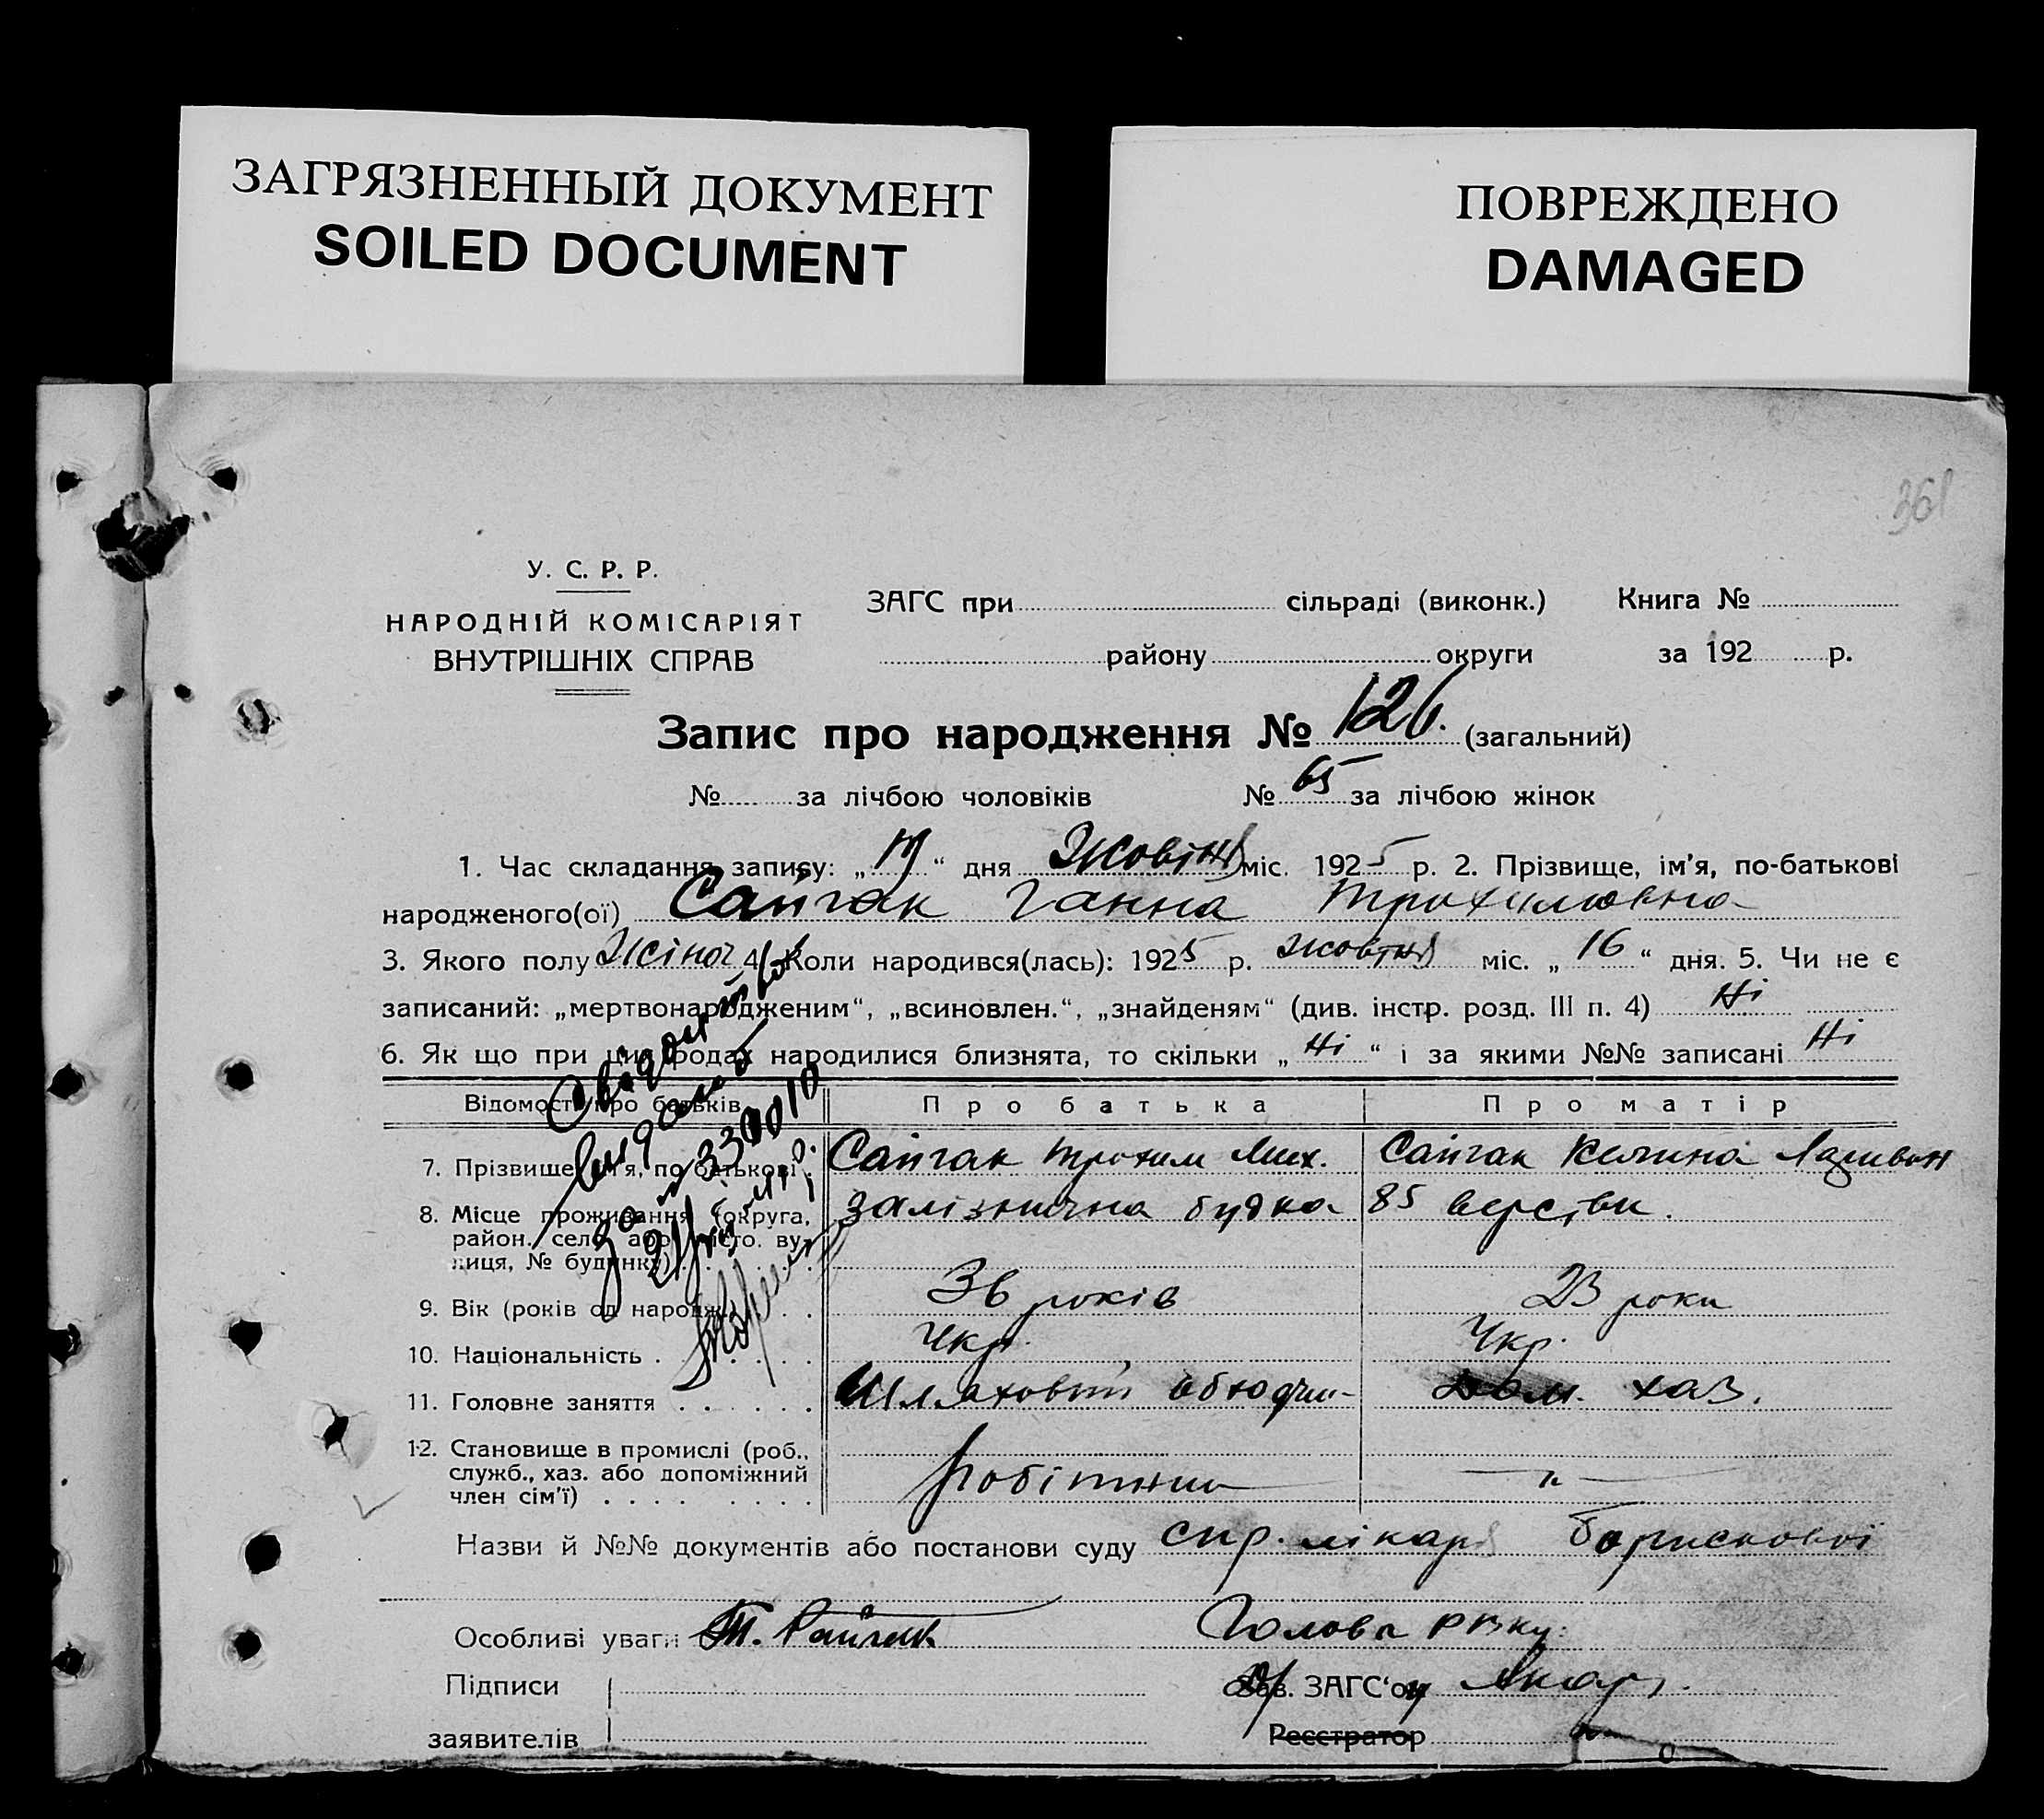 ЗАГРЯЗНЕННЫЙ ДОКУМЕНТ
SOILED DOCUMENT
ПОВРЕЖДЕНО
DAMAGED
361
У. С. Р. Р.
НАРОДНІЙ КОМІСАРІЯТ
ВНУТРІШНІХ СПРАВ
ЗАГС при сільраді (виконк.) Книга №
району округи за 192 р.
Запис про народження № 126. (загальний)
№ за лічбою чоловіків № 65 за лічбою жінок
1. Час складання запису: „ “ дня Жовтня міс. 1925 р. 2. Прізвище, ім'я, по-батькові
народженого(ої) Сайгак Ганна Трохимовна
3. Якого полу Жіноч 4. Коли народився(лась): 1925 р. жовтня міс. „ 16 “ дня. 5. Чи не є
записаний: „мертвонародженим“, „всиновлен.“, „знайденям“ (див. інстр. розд. III п. 4) Ні
6. Як що при цих родах народилися близнята, то скільки „ Ні “ і за якими №№ записані Ні
Відомості про батьків Про батька Про матір
7. Прізвище, ім'я, по батькові Сайгак Трохим Мих. Сайгак Килина
8. Місце проживання (округа, район, село або місто, вулиця, № будинку) залізнична будка 85 верстви.
9. Вік (років од народж.) 36 років 23 роки
10. Національність Укр. Укр.
11. Головне заняття Шляховий Дом. хаз.
12. Становище в промислі (роб., служб., хаз. або допоміжний член сім'ї) робітник — " —
Свідоцтво
видано
за №
Назви й №№ документів або постанови суду спр. лікаря Борискової
Особливі уваги Т. Сайгак Голова
Підписи Зав. ЗАГС'ом
заявителів Реєстратор